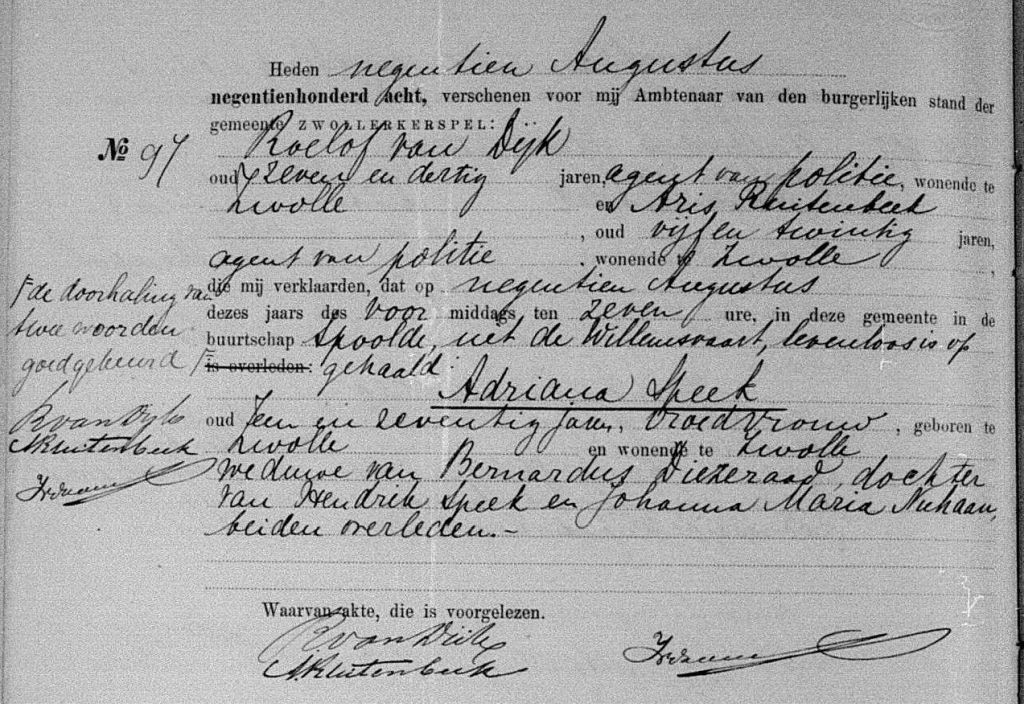 Heden negentien Augustus
negentienhonderd acht, verschenen voor mij Ambtenaar van den burgerlijken stand der
gemeente ZWOLLERKERSPEL:
№ 97
Roelof van Dijk
oud zeven en dertig jaren, agent van politie, wonende te
Zwolle en Aris Kuitenbeek
, oud vijf en twintig jaren,
agent van politie, wonende te Zwolle,
die mij verklaarden, dat op negentien Augustus
dezes jaars des voor middags ten zeven ure, in deze gemeente in de
buurtschap Spoolde, uit de Willemsvaart, levenloos is op
is overleden: gehaald:
Adriana Speek
oud een en zeventig jaren, vroedvrouw, geboren te
Zwolle en wonende te Zwolle
weduwe van Bernardus Diezeraad, dochter
van Hendrik Speek en Johanna Maria Niehaan,
beiden overleden.-
de doorhaling van
twee woorden
goedgekeurd
R van Dijk
A Kuitenbeek
Waarvan akte, die is voorgelezen.
R van Dijk
A. Kuitenbeek